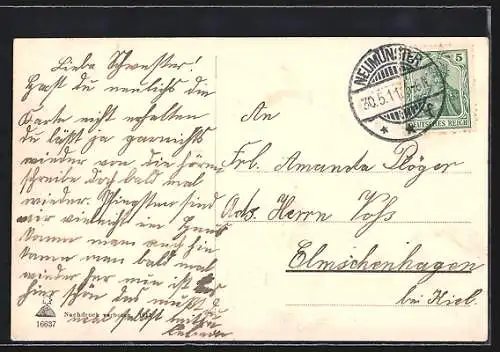 Liebe Schwester!
Hast du neulich die
Karte nicht erhalten
du läßt ja garnichts
wieder von die hören
schreibe doch bald mal
wieder. Pfingsten sind
wir vieleicht im
kann man auch hin
kann man bald mal
wieder her nun ist
hier schön das mußt
mal selbst
An
Frl. Amanda Plöger
Adr. Herrn Voß
Elmschenhagen
bei Kiel.
NEUMÜNSTER
30.5.11
5
DEUTSCHES REICH
16637
Nachdruck verboten